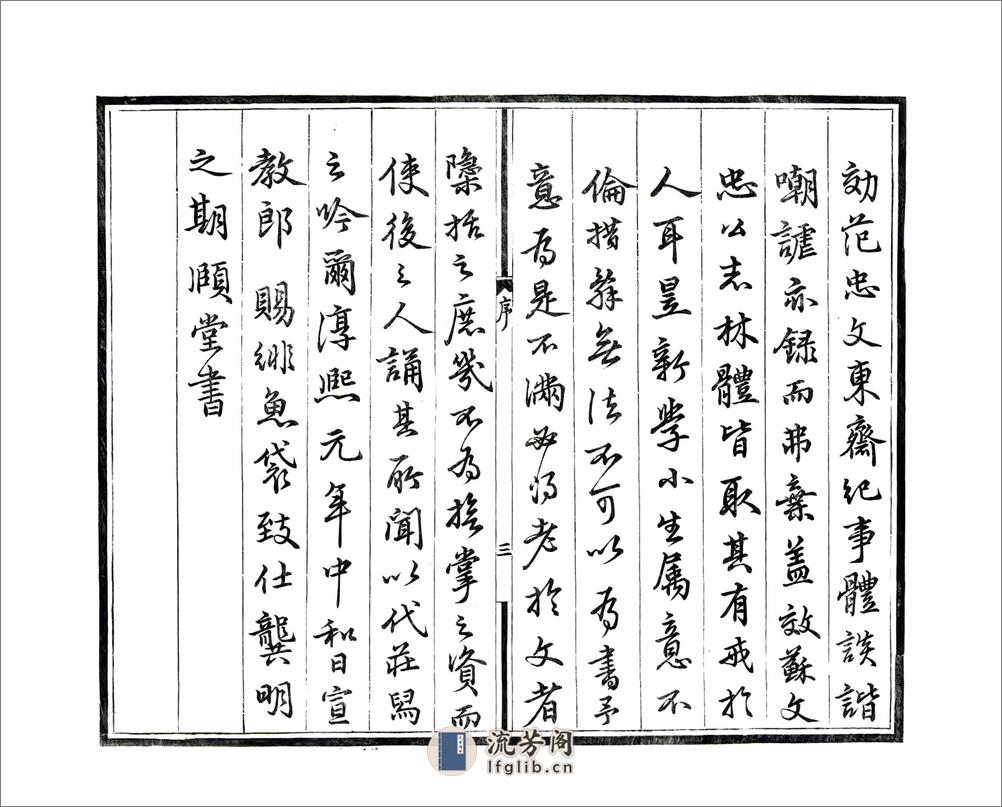 効范忠文東齋紀事體談諧
嘲謔亦錄而弗棄蓋效蘇文
忠公志林體皆取其有戒於
人耳昱新學小生屬意不
倫措辭無法不可以為書予
意為是不滿必得老於文者
序
三
隱括之庶幾不為撫掌之資而
使後之人誦其所聞以代莊舄
之吟爾淳熙元年中和日宣
教郎 賜緋魚袋致仕龔明
之期頤堂書
流芳阁
lfglib.cn